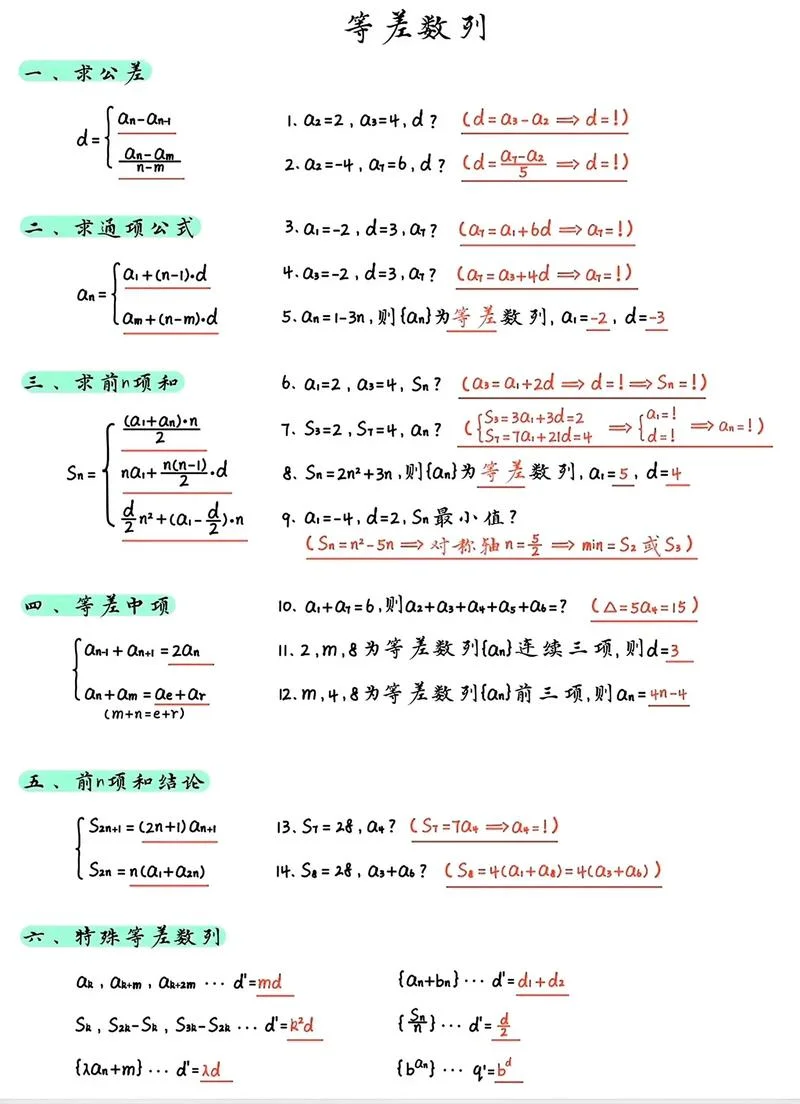 等差数列
一、求公差
d={ an-an-1
(an-am)/(n-m)
1. a2=2, a3=4, d? (d=a3-a2⟹d=!)
2. a2=-4, a7=6, d? (d=(a7-a2)/5⟹d=!)
二、求通项公式
an={ a1+(n-1)·d
am+(n-m)·d
3. a1=-2, d=3, a7? (a7=a1+6d⟹a7=!)
4. a3=-2, d=3, a7? (a7=a3+4d⟹a7=!)
5. an=1-3n, 则{an}为等差数列, a1=-2, d=-3
三、求前n项和
Sn={ (a1+an)·n/2
na1+n(n-1)/2·d
d/2 n²+(a1-d/2)·n
6. a1=2, a3=4, Sn? (a3=a1+2d⟹d=!⟹Sn=!)
7. S3=2, S7=4, an? ({S3=3a1+3d=2 S7=7a1+21d=4 ⟹{a1=! d=! ⟹an=!)
8. Sn=2n²+3n, 则{an}为等差数列, a1=5, d=4
9. a1=-4, d=2, Sn最小值?
(Sn=n²-5n⟹对称轴n=5/2⟹min=S2或S3)
四、等差中项
{ an-1+an+1=2an
an+am=ae+ar
(m+n=e+r)
10. a1+a7=6, 则a2+a3+a4+a5+a6=? (△=5a4=15)
11. 2, m, 8为等差数列{an}连续三项, 则d=3
12. m, 4, 8为等差数列{an}前三项, 则an=4n-4
五、前n项和结论
{ S2n+1=(2n+1)an+1
S2n=n(a1+a2n)
13. S7=28, a4? (S7=7a4⟹a4=!)
14. S8=28, a3+a6? (S8=4(a1+a8)=4(a3+a6))
六、特殊等差数列
ak, ak+m, ak+2m ··· d'=md
{an+bn} ··· d'=d1+d2
Sk, S2k-Sk, S3k-S2k ··· d'=k²d
{Sn/n} ··· d'=d/2
{λan+m} ··· d'=λd
{b^an} ··· q'=b^d